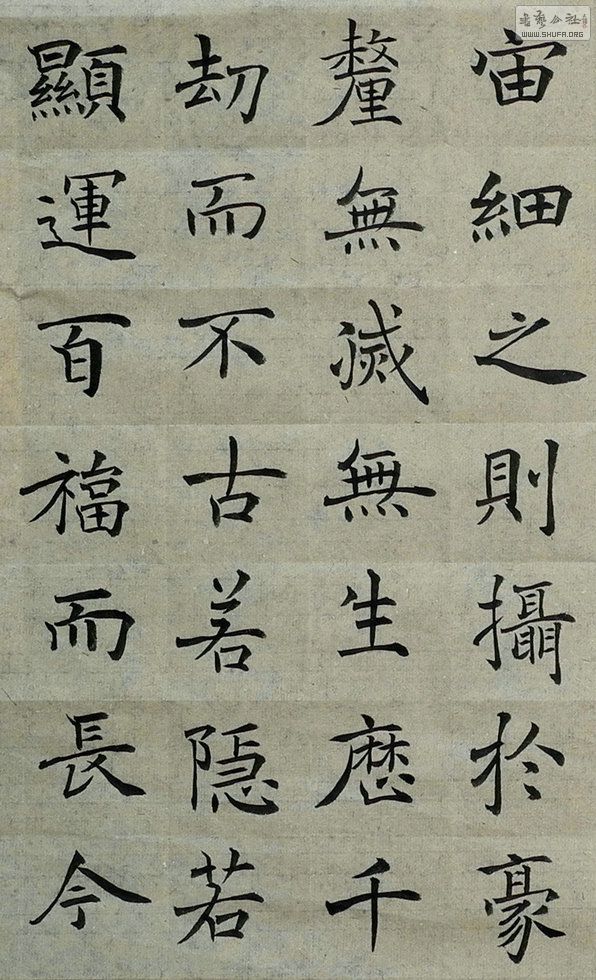 宙細之則攝於豪
釐無滅無生歷千
劫而不古若隱若
顯運百福而長今
WWW.SHUFA.ORG